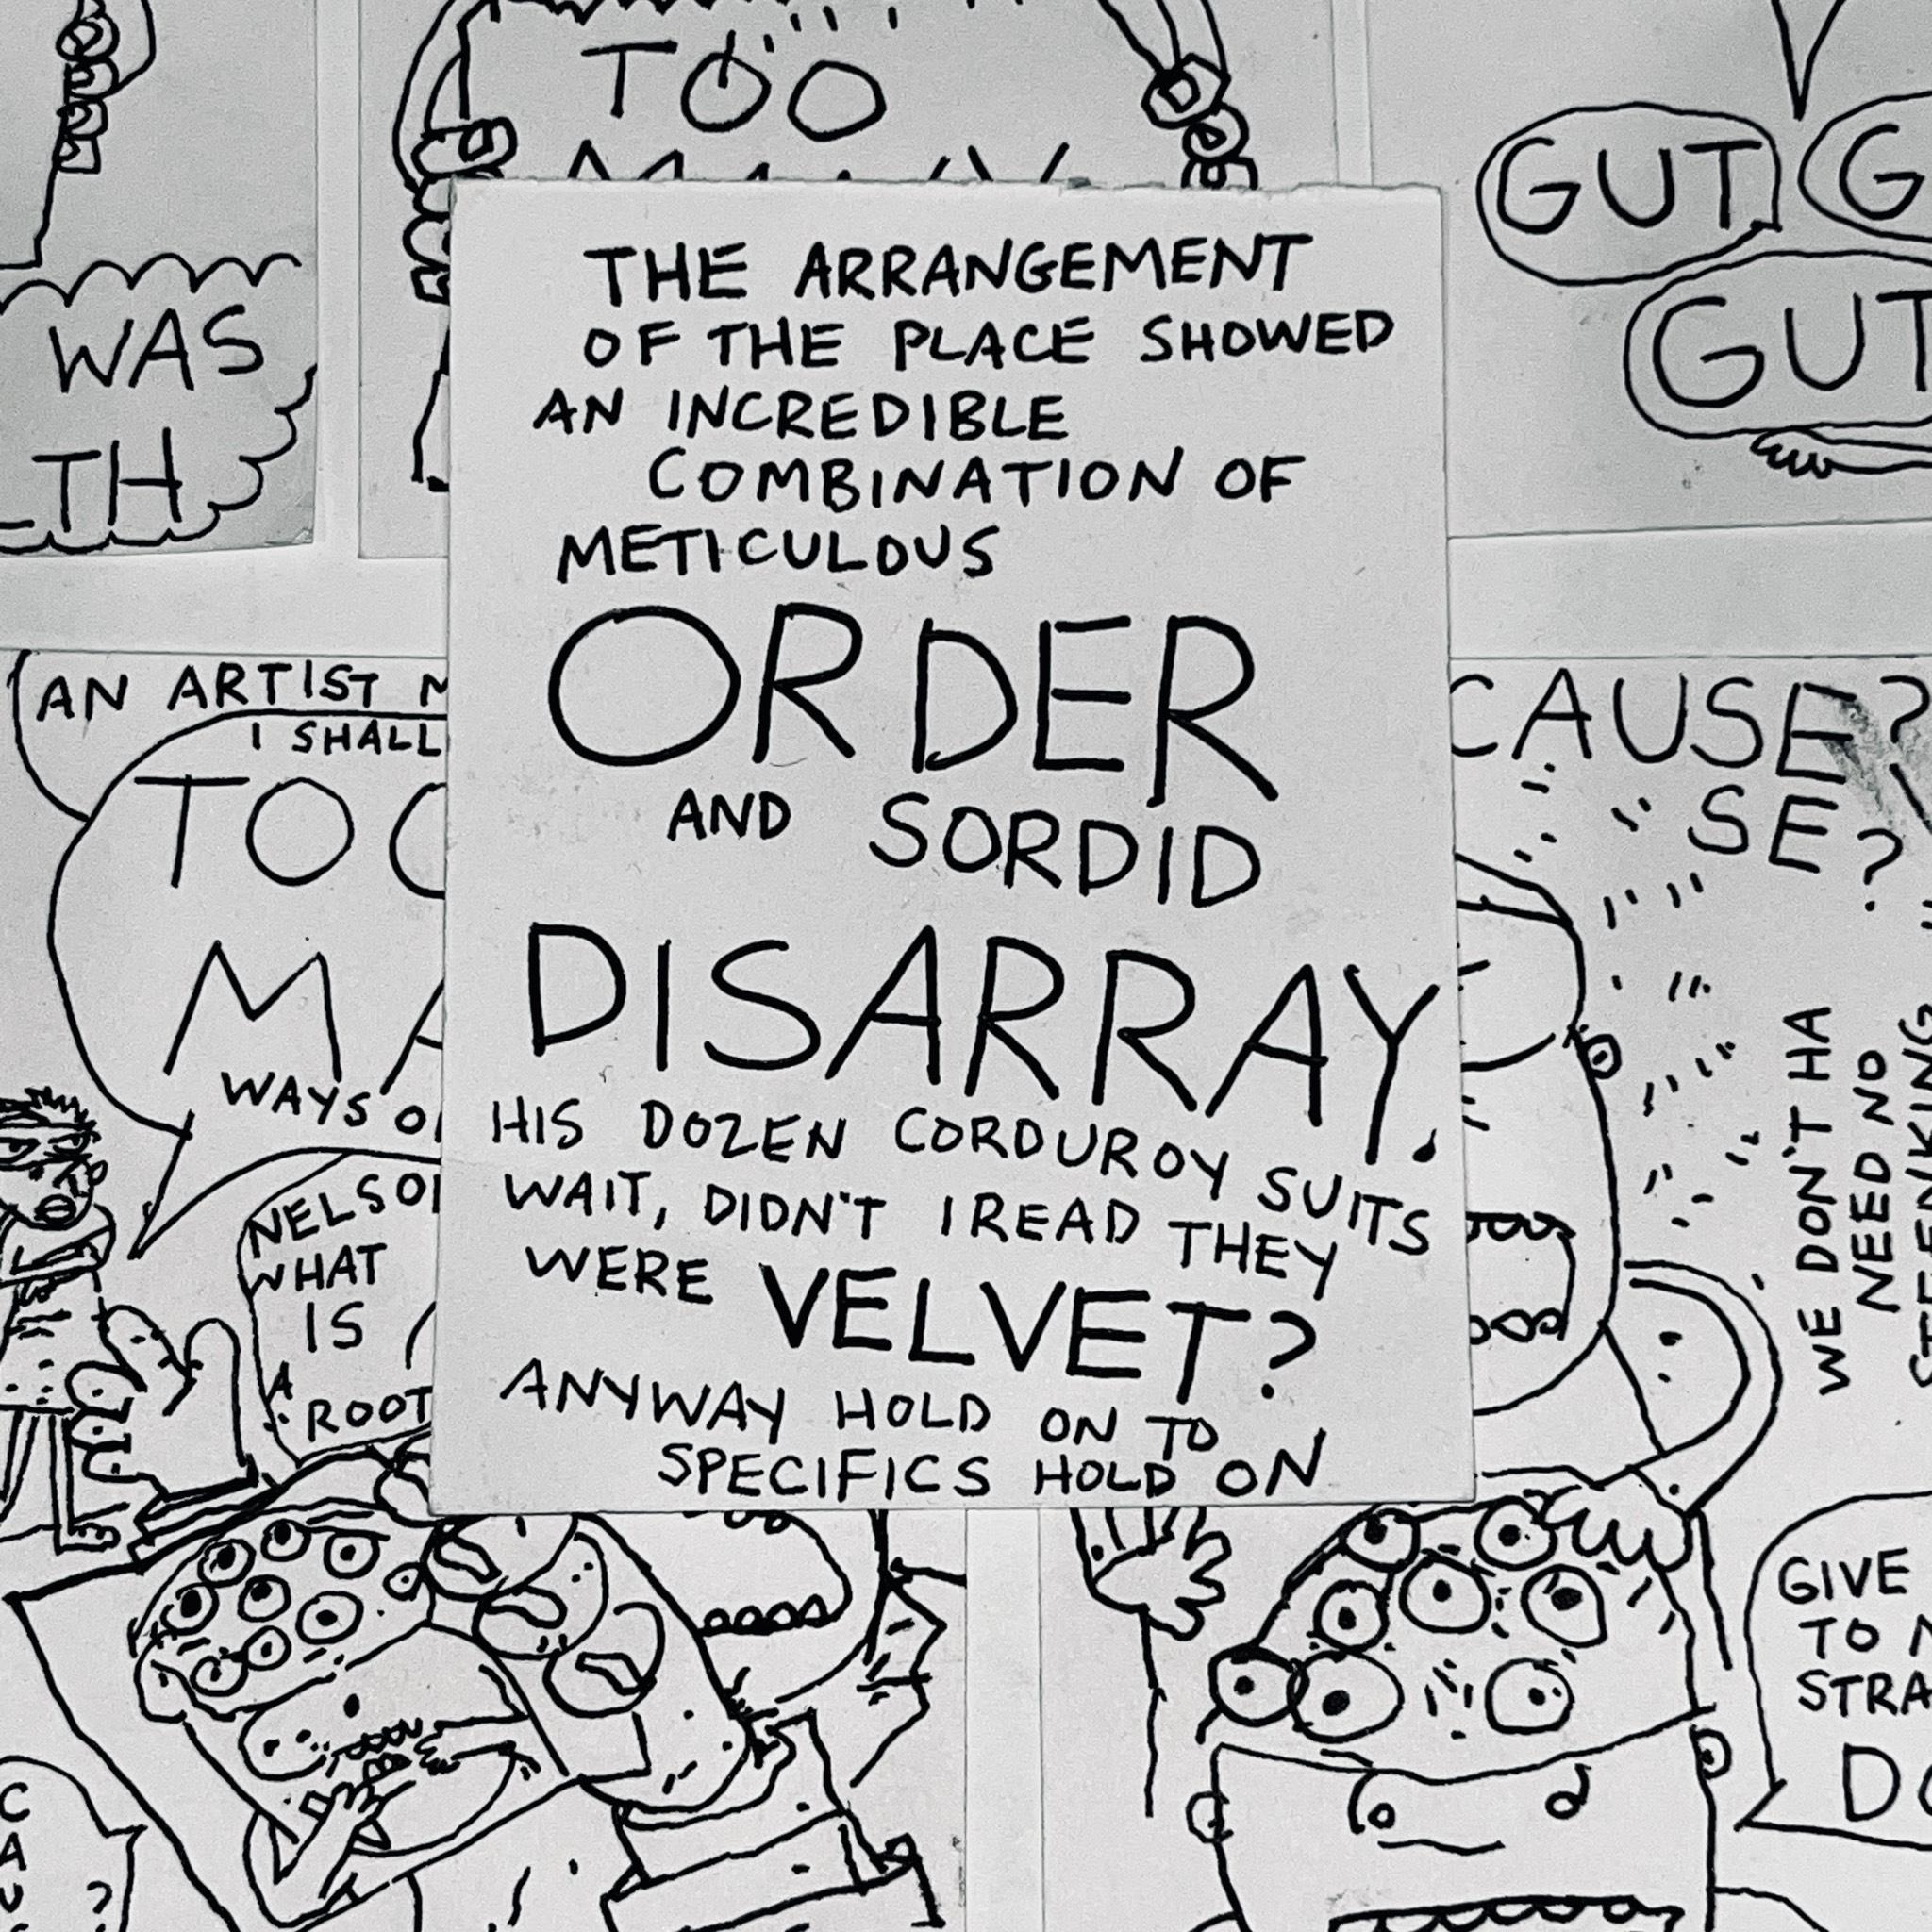 TOO
WAS
TH
GUT
GUT
THE ARRANGEMENT
OF THE PLACE SHOWED
AN INCREDIBLE
COMBINATION OF
METICULOUS
ORDER
AND SORDID
DISARRAY.
HIS DOZEN CORDUROY SUITS
WAIT, DIDN'T I READ THEY
WERE VELVET?
ANYWAY HOLD ON TO
SPECIFICS HOLD ON
AN ARTIST
I SHALL
WAYS
WHAT
IS
A
ROOT
CAUSE?
SE?
WE DON'T HA
NEED NO
GIVE
TO
STRA